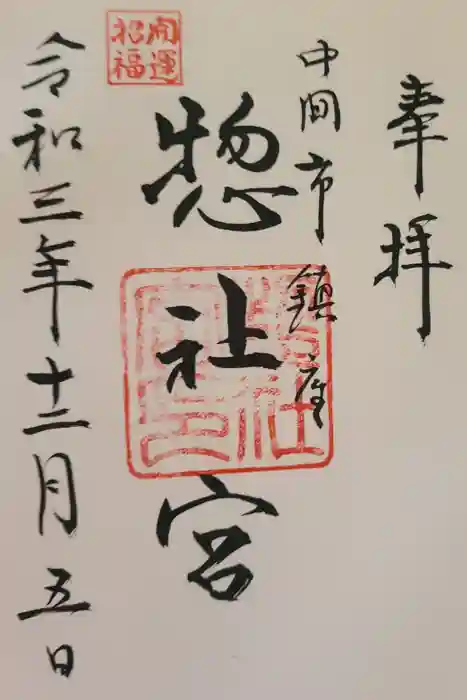 奉拝
中間市鎮座
惣社宮
開運
招福
惣社宮印
令和三年十二月五日